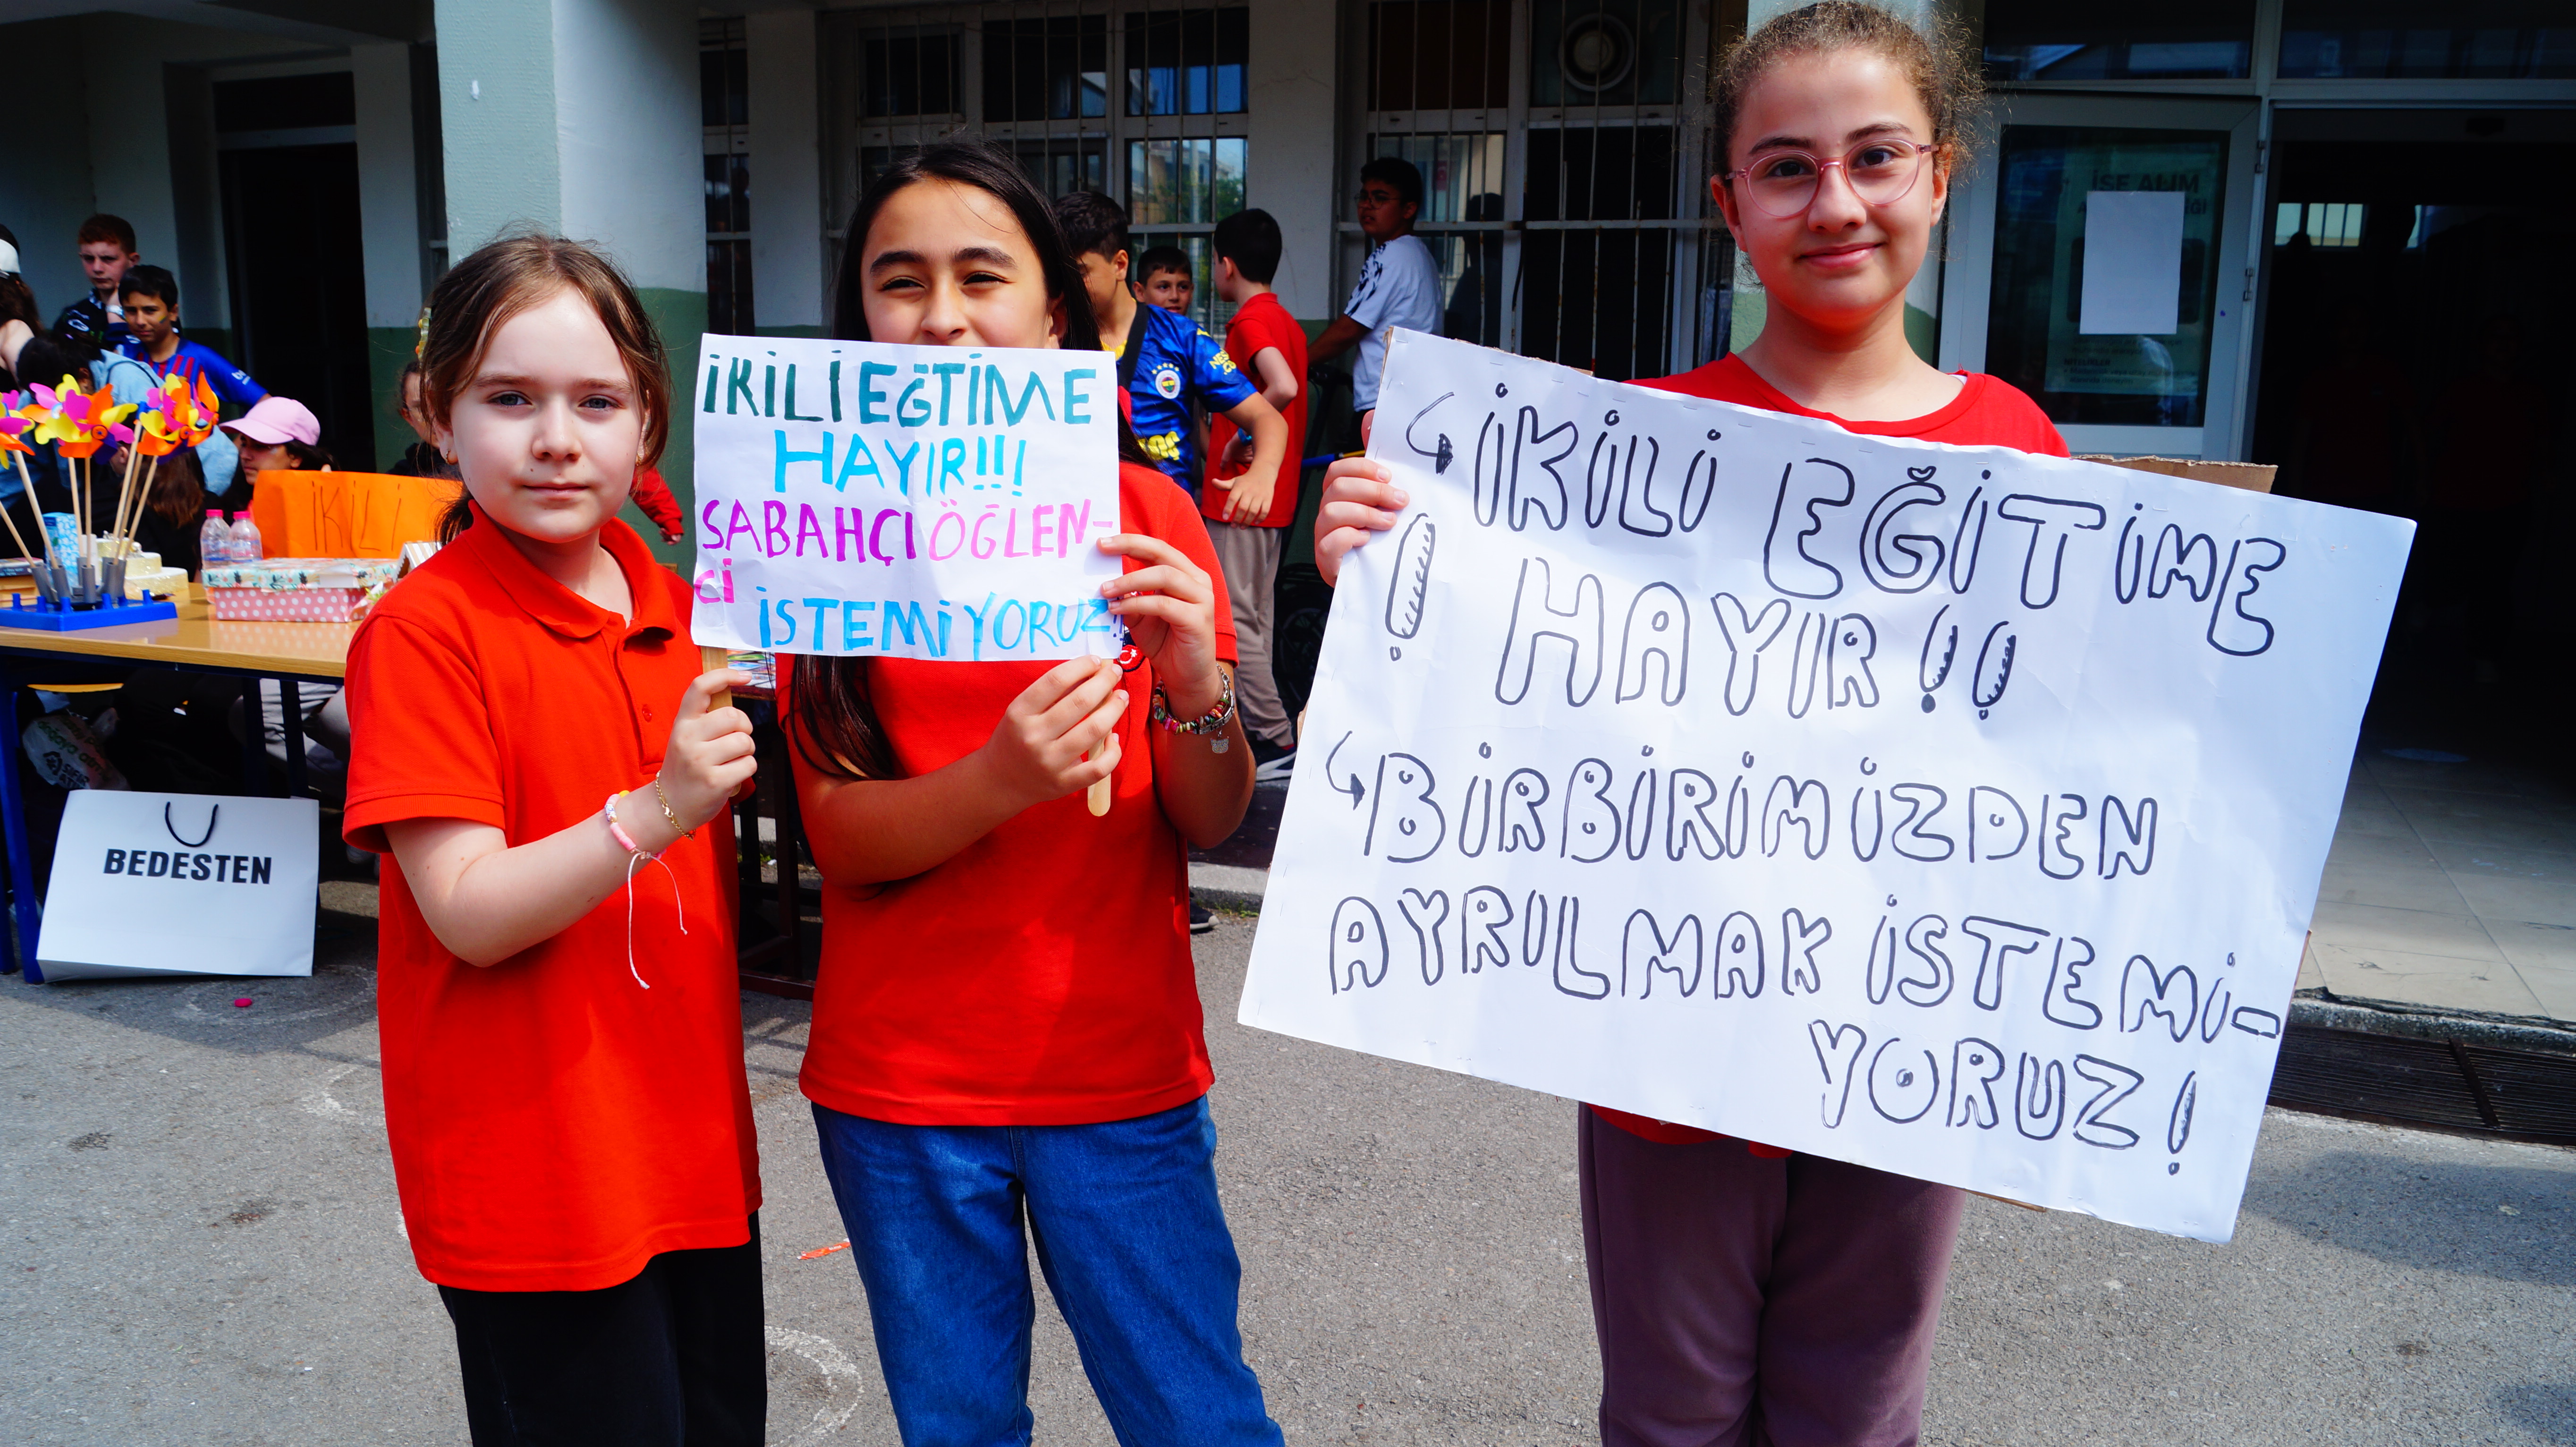 İKİLİ EĞİTİME
HAYIR!!!
SABAHÇI ÖĞLEN-
Cİ
İSTEMİYORUZ!
İKİLİ EĞİTİME
! HAYIR!!
BİRBİRİMİZDEN
AYRILMAK İSTEMİ-
YORUZ!
İKİLİ
BEDESTEN
İŞE ALIM